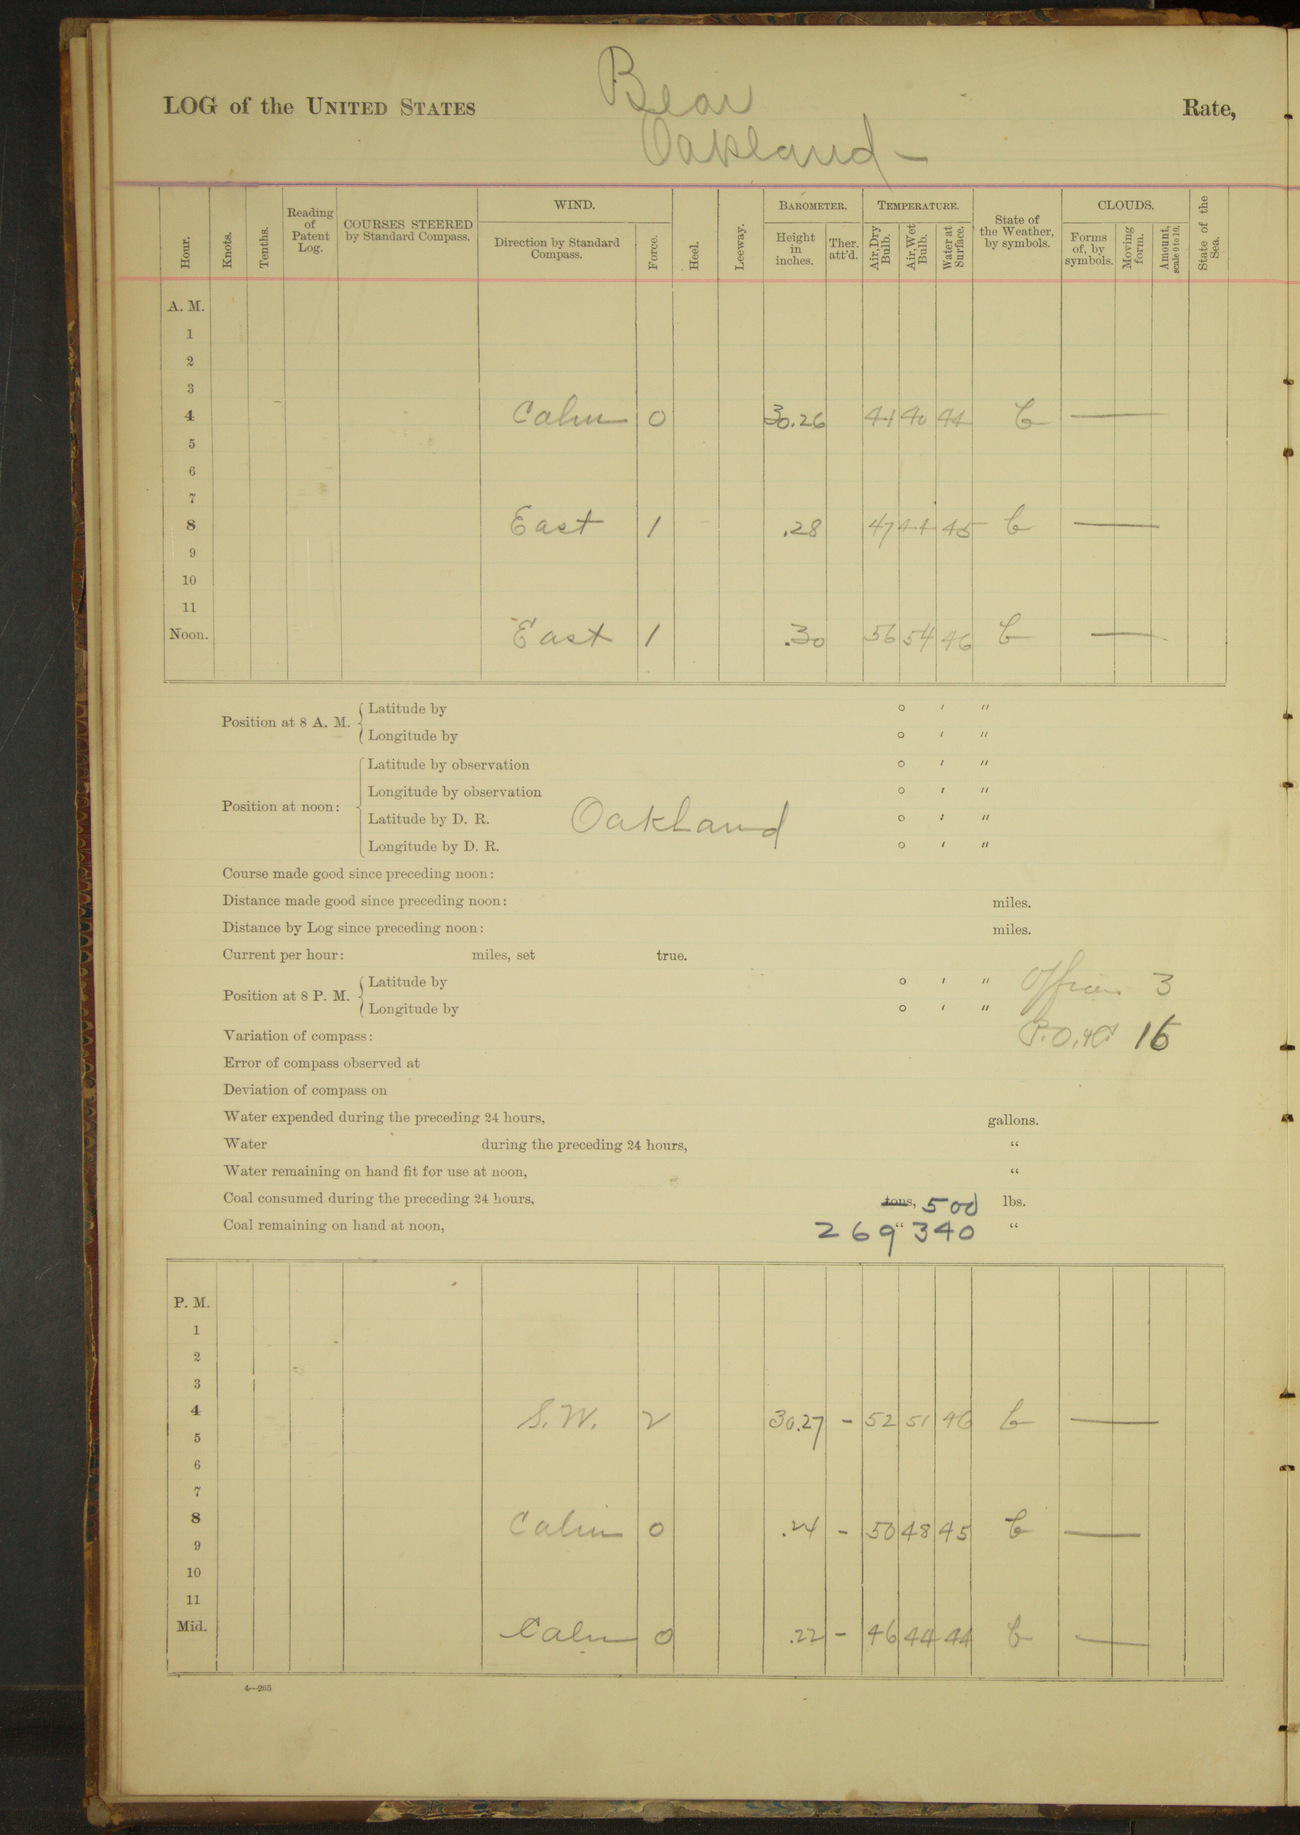 LOG of the UNITED STATES Bear Rate,
Oakland –
Hour. Knots. Tenths. Reading of Patent Log. COURSES STEERED by Standard Compass. WIND. Direction by Standard Compass. Force. Heel. Leeway. BAROMETER. Height in inches. Ther. att'd. TEMPERATURE. Air, Dry Bulb. Air, Wet Bulb. Water at Surface. State of the Weather, by symbols. CLOUDS. Forms of, by symbols. Moving form. Amount, scale 0 to 10. State of the Sea.
A. M.
1
2
3
4 Calm 0 30.26 41 40 44 b —
5
6
7
8 East 1 .28 47 44 45 b —
9
10
11
Noon. East 1 .30 56 54 46 b —
Position at 8 A. M. Latitude by ° ′ ″
Longitude by ° ′ ″
Position at noon: Latitude by observation ° ′ ″
Longitude by observation ° ′ ″
Latitude by D. R. Oakland ° ′ ″
Longitude by D. R. ° ′ ″
Course made good since preceding noon:
Distance made good since preceding noon: miles.
Distance by Log since preceding noon: miles.
Current per hour: miles, set true.
Position at 8 P. M. Latitude by ° ′ ″ Officers 3
Longitude by ° ′ ″
Variation of compass: P.O. & C 15
Error of compass observed at
Deviation of compass on
Water expended during the preceding 24 hours, gallons.
Water during the preceding 24 hours, “
Water remaining on hand fit for use at noon, “
Coal consumed during the preceding 24 hours, tons, 500 lbs.
Coal remaining on hand at noon, 269 “ 340 “
P. M.
1
2
3
4 S.W. 2 30.27 – 52 51 46 b —
5
6
7
8 Calm 0 .24 – 50 48 45 b —
9
10
11
Mid. Calm 0 .22 – 46 44 44 b —
4—265